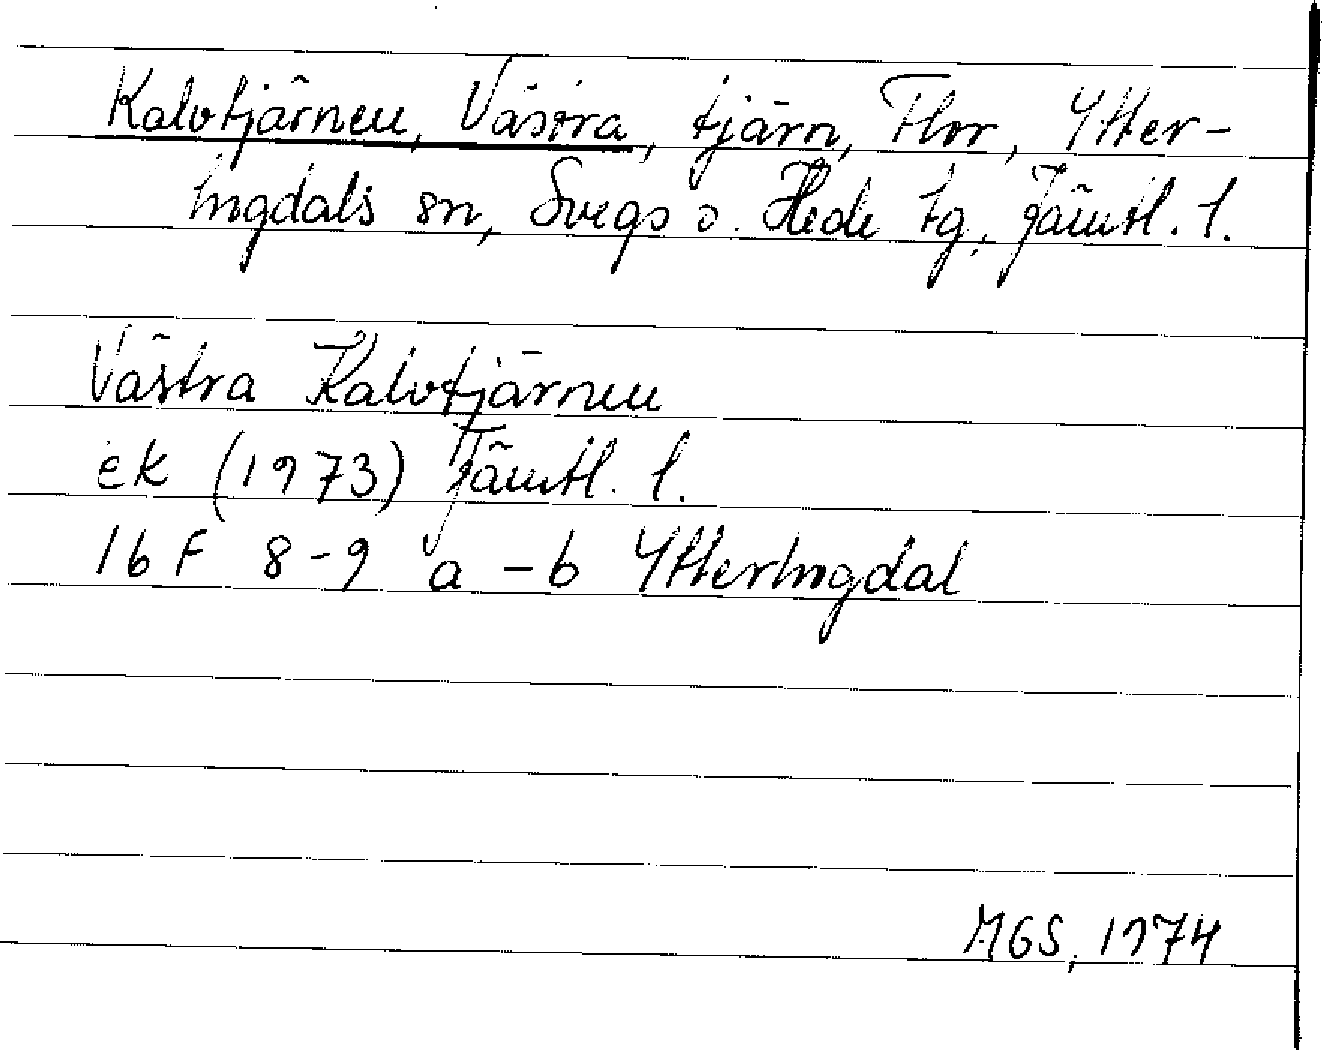 Kalvtjärnen, Västra, tjärn, Flor, Ytter-
hogdals sn, Svegs o. Hede tg, Jämtl. l.
Västra Kalvtjärnen
ek (1973) Jämtl. l.
16 F 8-9 a-b Ytterhogdal
MGS, 1974